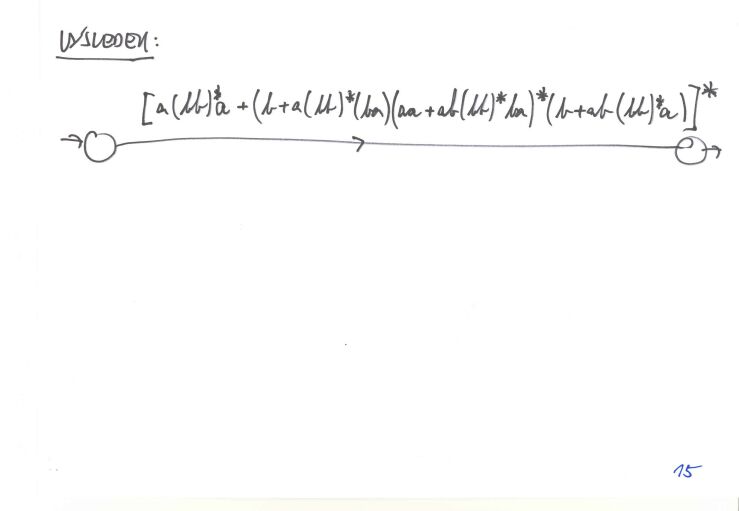 VÝSLEDEK:
[a(bb)*a + (b+a(bb)*(ba)(aa+ab(bb)*ba)*(b+ab(bb)*a)]*
15